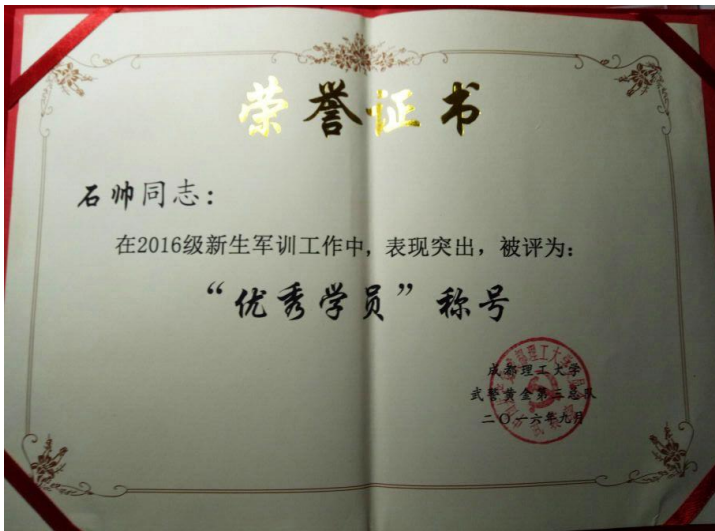 荣誉证书
石帅同志：
在2016级新生军训工作中，表现突出，被评为：
“优秀学员”称号
成都理工大学
武警黄金第三总队
二〇一六年九月